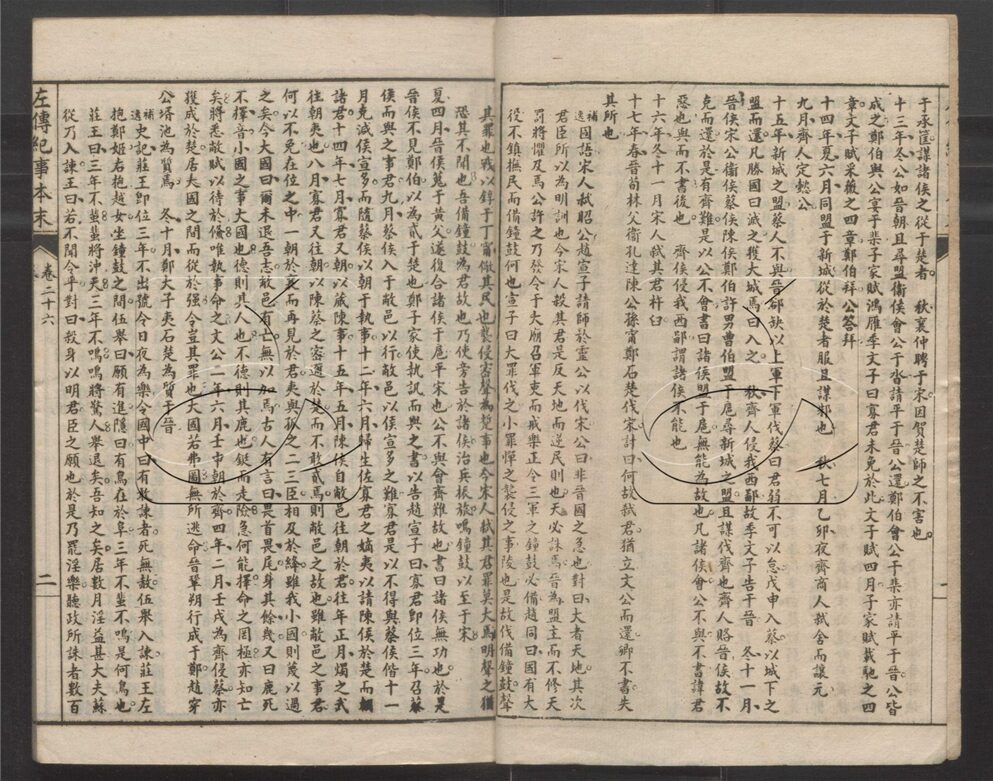 于承匡謀諸侯之從于楚者 秋襄仲聘于宋因賀楚師之不害也
十三年冬公如晉朝且尋盟衞侯會公于沓請平于晉公還鄭伯會公于棐亦請平于晉公皆
成之鄭伯與公宴于棐子家賦鴻雁季文子曰寡君未免於此文子賦四月子家賦載馳之四
章文子賦采薇之四章鄭伯拜公答拜
十四年夏六月同盟于新城從於楚者服且謀邾也 秋七月乙卯夜齊商人弒舍而讓元
九月齊人定懿公
十五年新城之盟蔡人不與晉郤缺以上軍下軍伐蔡曰君弱不可以怠戊申入蔡以城下之
盟而還凡勝國曰滅之獲大城焉曰入之 秋齊人侵我西鄙故季文子告于晉 冬十一月
晉侯宋公衞侯蔡侯陳侯鄭伯許男曹伯盟于扈尋新城之盟且謀伐齊也齊人賂晉侯故不
克而還於是有齊難是以公不會書曰諸侯盟于扈無能為故也凡諸侯會公不與不書諱君
惡也與而不書後也 齊侯侵我西鄙謂諸侯不能也
十六年冬十一月宋人弒其君杵臼
十七年春晉荀林父衞孔達陳公孫寧鄭石楚伐宋討曰何故弒君猶立文公而還卿不書失
其所也
補逸國語宋人弒昭公趙宣子請師於靈公以伐宋公曰非晉國之急也對曰大者天地其次
君臣所以為明訓也今宋人殺其君是反天地而逆民則也天必誅焉晉為盟主而不修天
罰將懼及焉公許之乃發令于太廟召軍吏而戒樂正令三軍之鐘鼓必備趙同曰國有大
役不鎮撫民而備鐘鼓何也宣子曰大罪伐之小罪憚之襲侵之事陵也是故伐備鐘鼓聲
其罪也戰以錞于丁寧儆其民也襲侵密聲為蹔事也今宋人弒其君罪莫大焉明聲之猶
恐其不聞也吾備鐘鼓為君故也乃使旁告於諸侯治兵振旅鳴鐘鼓以至于宋
夏四月晉侯蒐于黃父遂復合諸侯于扈平宋也公不與會齊難故也書曰諸侯無功也於是
晉侯不見鄭伯以為貳于楚也鄭子家使執訊而與之書以告趙宣子曰寡君即位三年召蔡
侯而與之事君九月蔡侯入于敝邑以行敝邑以侯宣多之難寡君是以不得與蔡侯偕十一
月克滅侯宣多而隨蔡侯以朝于執事十二年六月歸生佐寡君之嫡夷以請陳侯於楚而朝
諸君十四年七月寡君又朝以蕆陳事十五年五月陳侯自敝邑往朝於君往年正月燭之武
往朝夷也八月寡君又往朝以陳蔡之密邇於楚而不敢貳焉則敝邑之故也雖敝邑之事君
何以不免在位之中一朝於襄而再見於君夷與孤之二三臣相及於絳雖我小國則蔑以過
之矣今大國曰爾未逞吾志敝邑有亡無以加焉古人有言曰畏首畏尾身其餘幾又曰鹿死
不擇音小國之事大國也德則其人也不德則其鹿也鋌而走險急何能擇命之罔極亦知亡
矣將悉敝賦以待於儵唯執事命之文公二年六月壬申朝於齊四年二月壬戌為齊侵蔡亦
獲成於楚居大國之間而從於强令豈其罪也大國若弗圖無所逃命晉鞏朔行成于鄭趙穿
公壻池為質焉 冬十月鄭大子夷石楚為質于晉
補逸史記莊王即位三年不出號令日夜為樂令國中曰有敢諫者死無赦伍舉入諫莊王左
抱鄭姬右抱越女坐鐘鼓之間伍舉曰願有進隱曰有鳥在於阜三年不蜚不鳴是何鳥也
莊王曰三年不蜚蜚將沖天三年不鳴鳴將驚人舉退矣吾知之矣居數月淫益甚大夫蘇
從乃入諫王曰若不聞令乎對曰殺身以明君臣之願也於是乃罷淫樂聽政所誅者數百
左傳紀事本末
卷二十六
二